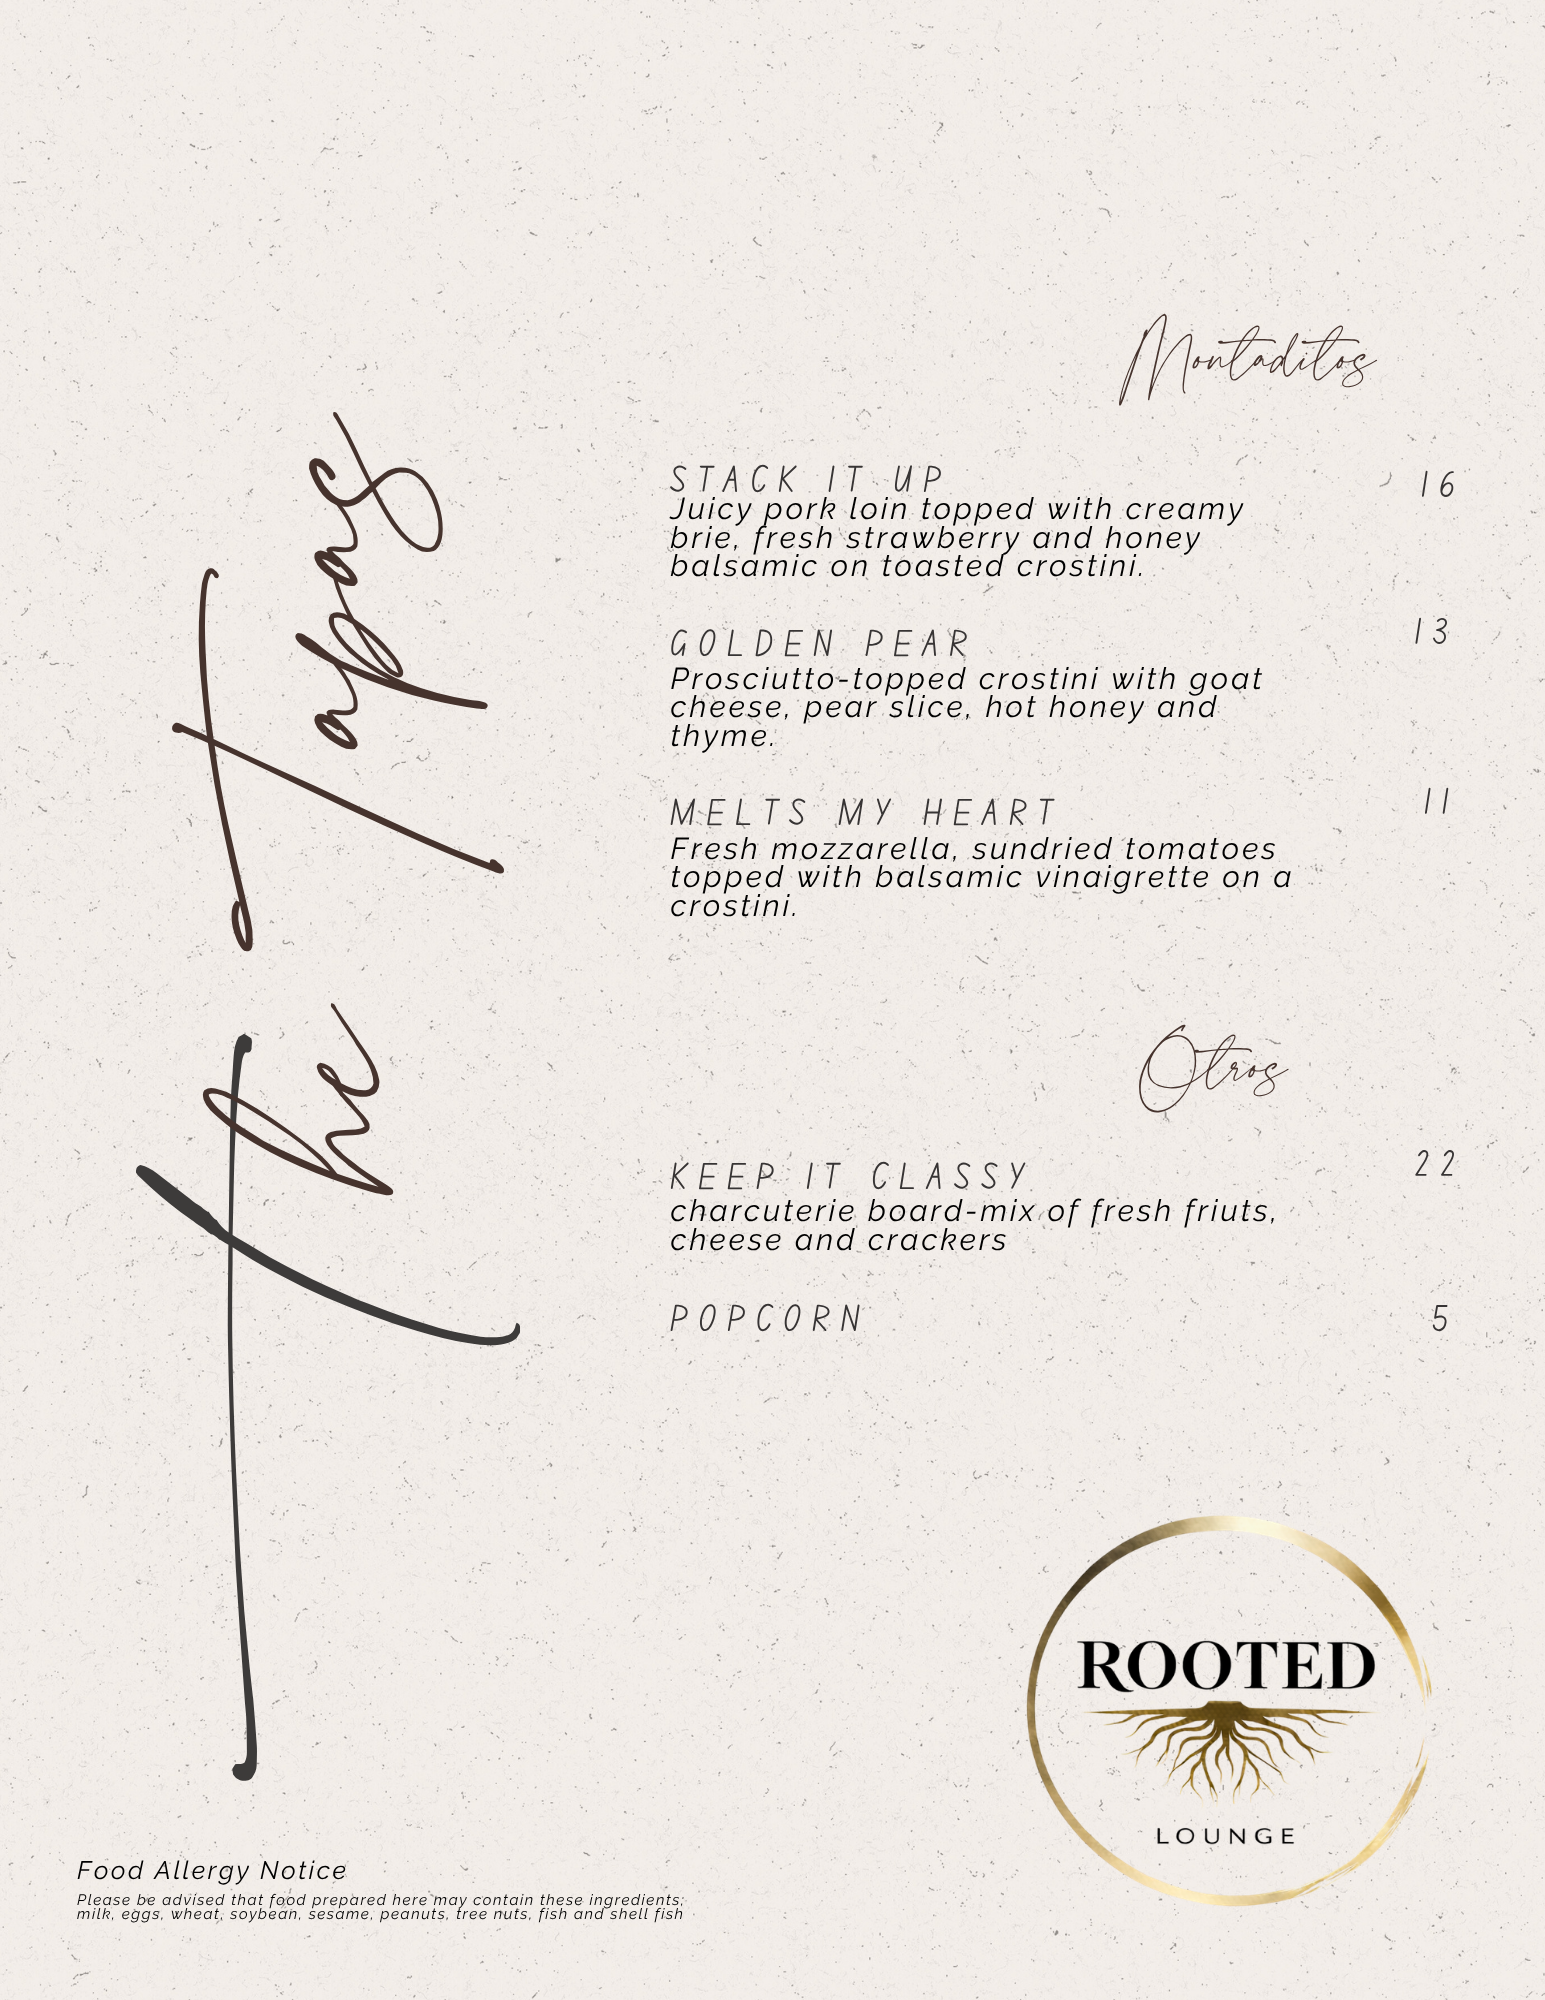 The Tapas
Montaditos
STACK IT UP 16
Juicy pork loin topped with creamy
brie, fresh strawberry and honey
balsamic on toasted crostini.
GOLDEN PEAR 13
Prosciutto-topped crostini with goat
cheese, pear slice, hot honey and
thyme.
MELTS MY HEART 11
Fresh mozzarella, sundried tomatoes
topped with balsamic vinaigrette on a
crostini.
Otros
KEEP IT CLASSY 22
charcuterie board-mix of fresh friuts,
cheese and crackers
POPCORN 5
ROOTED
LOUNGE
Food Allergy Notice
Please be advised that food prepared here may contain these ingredients;
milk, eggs, wheat, soybean, sesame, peanuts, tree nuts, fish and shell fish